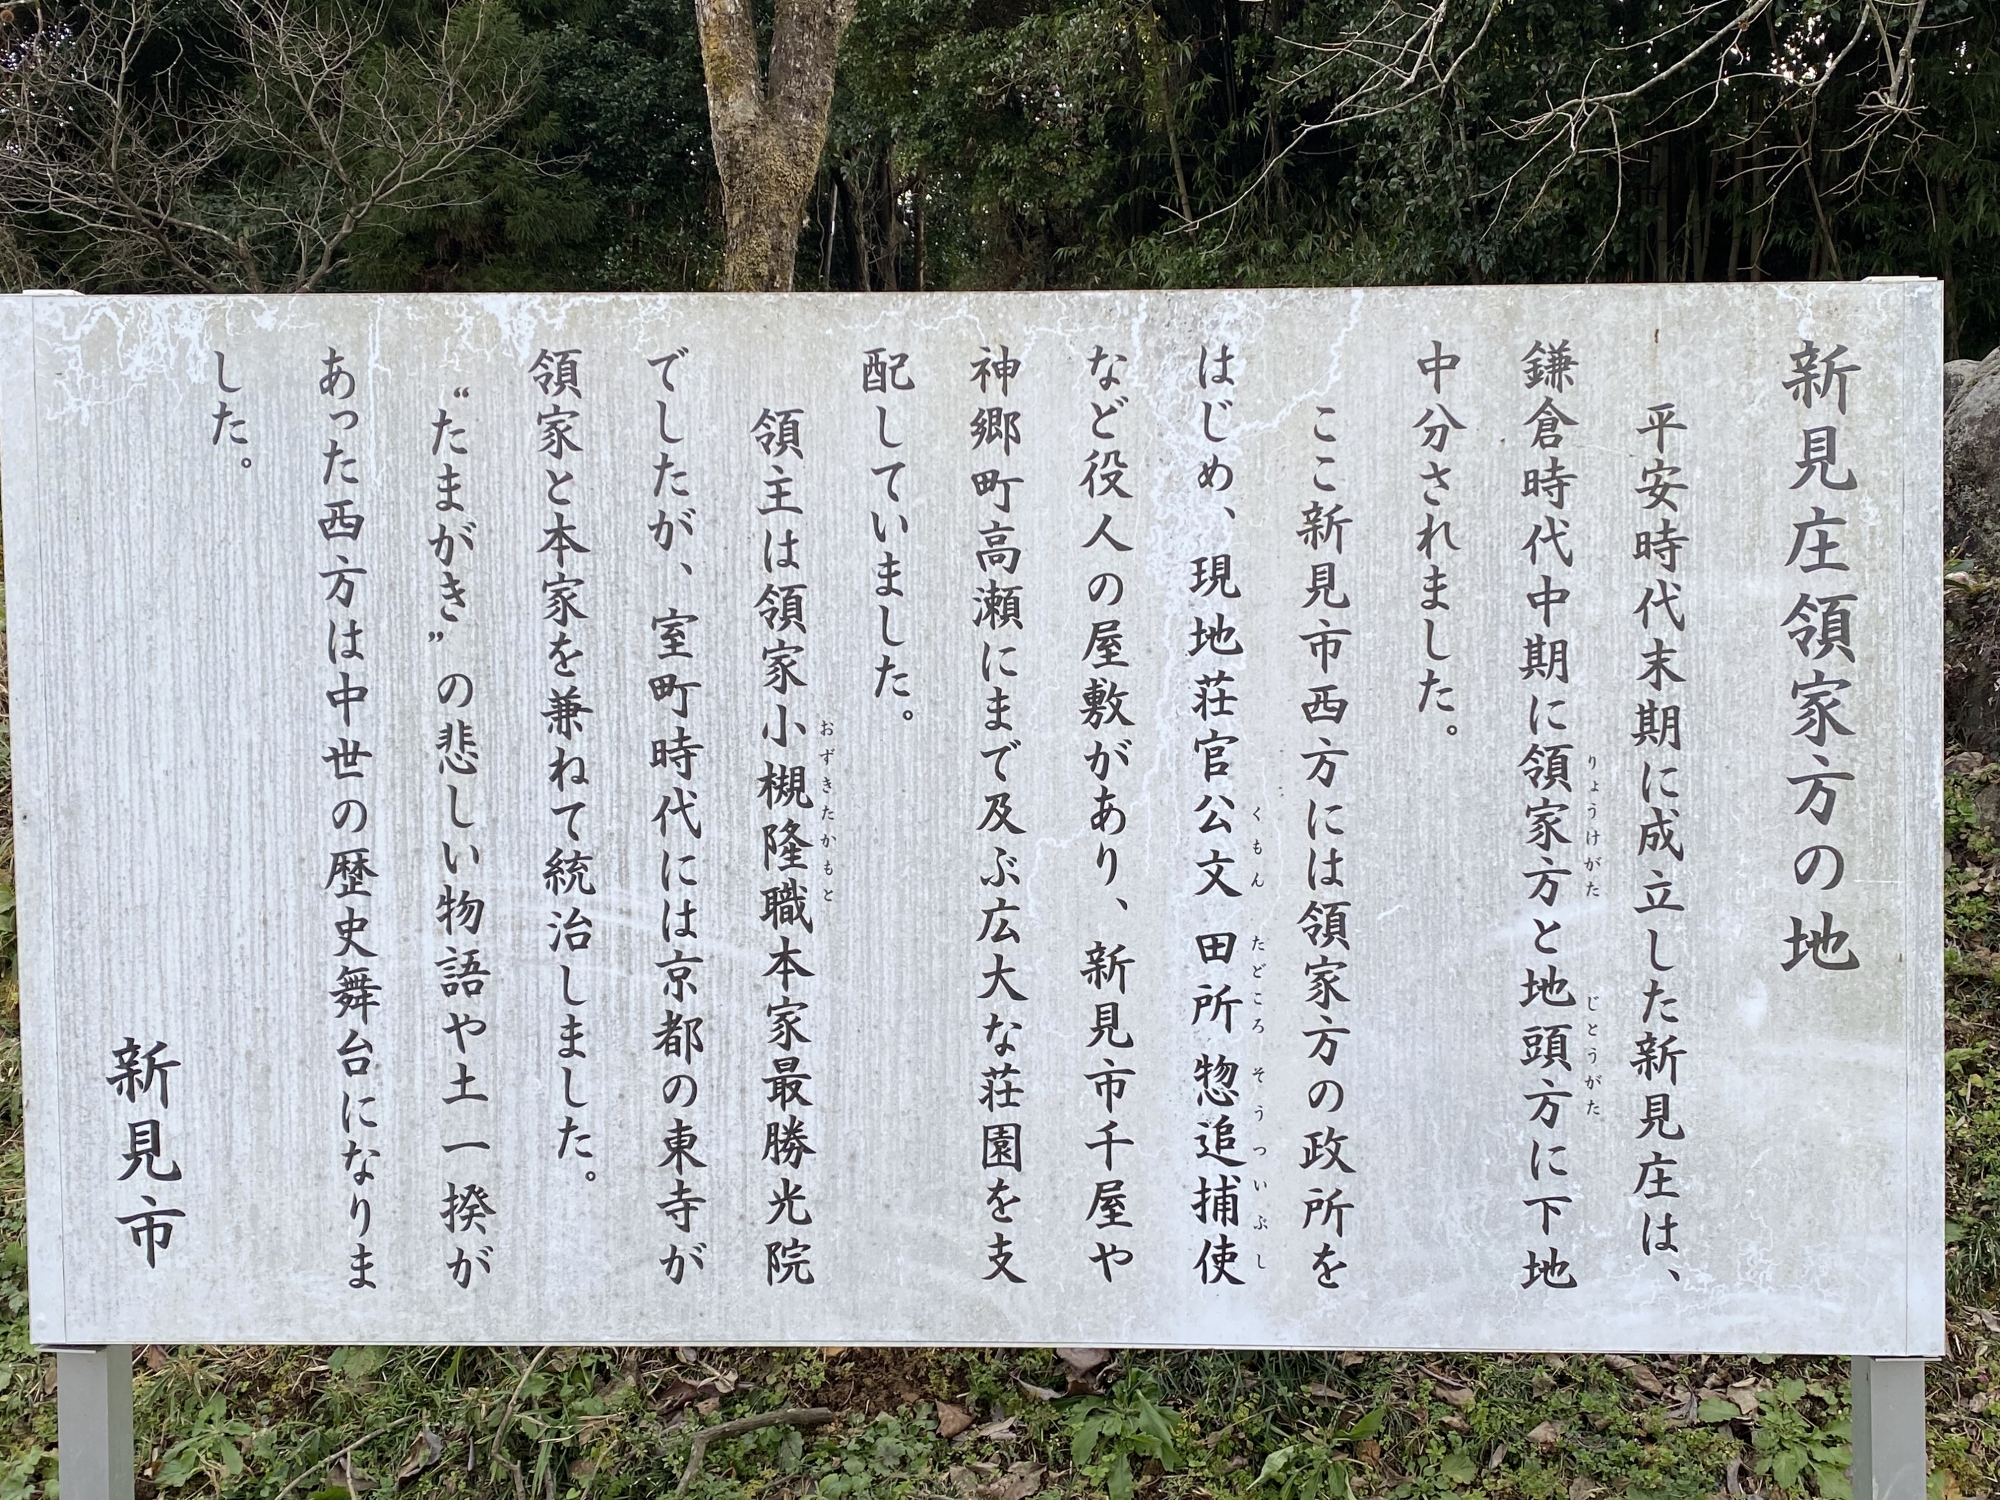 新見庄領家方の地
平安時代末期に成立した新見庄は、
鎌倉時代中期に領家方と地頭方に下地
りょうけがた じとうがた
中分されました。
ここ新見市西方には領家方の政所を
はじめ、現地荘官公文 田所 惣追捕使
くもん たどころ そうついぶし
など役人の屋敷があり、新見市千屋や
神郷町高瀬にまで及ぶ広大な荘園を支
配していました。
領主は領家小槻隆職本家最勝光院
おずきたかもと
でしたが、室町時代には京都の東寺が
領家と本家を兼ねて統治しました。
“たまがき”の悲しい物語や土一揆が
あった西方は中世の歴史舞台になりま
した。
新見市